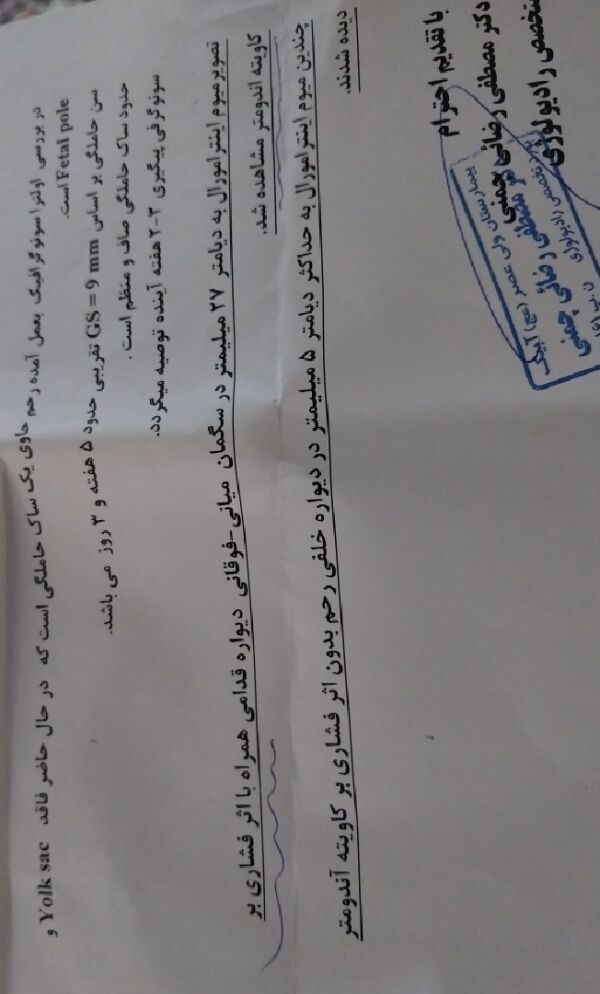 در بررسی اولتراسونوگرافیک بعمل آمده رحم حاوی یک ساک حاملگی است که در حال حاضر فاقد Yolk sac و
Fetal pole است.
سن حاملگی بر اساس GS = 9 mm تقریبی حدود ۵ هفته و ۳ روز می باشد.
حدود ساک حاملگی صاف و منظم است .
سونوگرفی پیگیری ۳-۲ هفته آینده توصیه میگردد.
تصویر میوم اینترامورال به دیامتر ۲۷ میلیمتر در سگمان میانی-فوقانی دیواره قدامی همراه با اثر فشاری بر
کاویته اندومتر مشاهده شد.
چندین میوم اینترامورال به حداکثر دیامتر ۵ میلیمتر در دیواره خلفی رحم بدون اثر فشاری بر کاویته آندومتر
دیده شدند.
با تقدیم احترام
دکتر مصطفی رضائی چمنی
متخصص رادیولوژی
بیمارستان ولی عصر (عج) آبیک
دکتر مصطفی رضائی چمنی
متخصص رادیولوژی